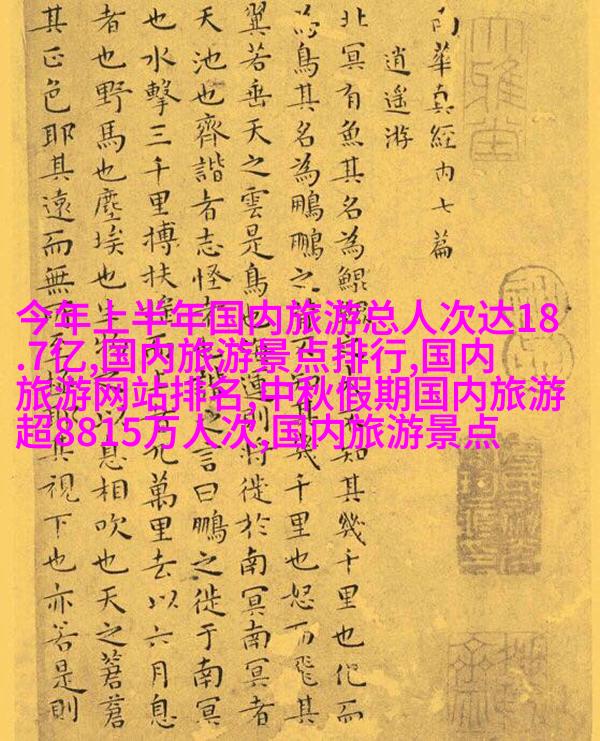 南華真經内七篇
逍遥游
北冥有魚其名為鯤知其幾千里也化而
為鳥其名為鵬鵬之其幾千里也怒而飛其
翼若垂天之雲是鳥也運則將徙於南冥南冥者
天池也齊諧者志怪之言曰鵬之徙于南冥
也水擊三千里搏扶九萬里去以六月息
者也野馬也塵埃也息相吹也天之蒼蒼
其正色耶其遠而無其視下也亦若是則
今年上半年国内旅游总人次达18
.7亿,国内旅游景点排行,国内
旅游网站排名,中秋假期国内旅游
超8815万人次,国内旅游景点